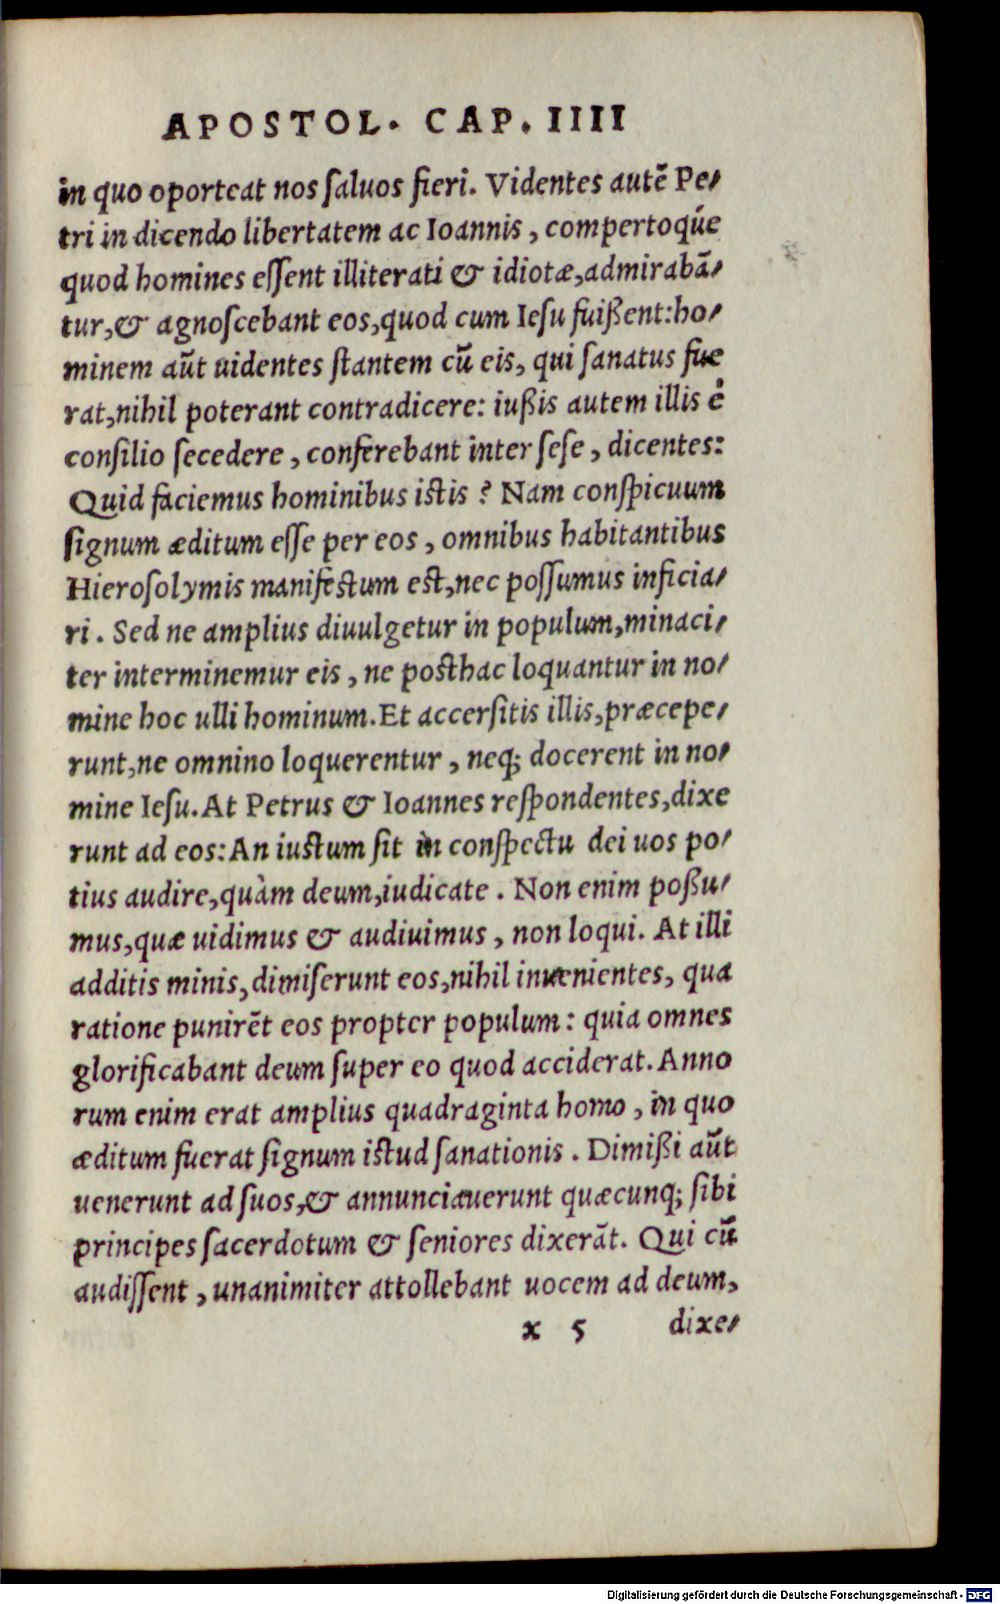 APOSTOL. CAP. IIII
in quo oporteat nos ſaluos fieri. Videntes autē Pe⸗
tri in dicendo libertatem ac Ioannis, compertoq́ue
quod homines eſſent illiterati & idiotæ, admirabā⸗
tur, & agnoſcebant eos, quod cum Ieſu fuißent: ho⸗
minem aūt uidentes ſtantem cū eis, qui ſanatus fue
rat, nihil poterant contradicere: iußis autem illis è
conſilio ſecedere, conferebant inter ſeſe, dicentes:
Quid faciemus hominibus iſtis? Nam conſpicuum
ſignum æditum eſſe per eos, omnibus habitantibus
Hieroſolymis manifeſtum eſt, nec poſſumus inficia⸗
ri. Sed ne amplius diuulgetur in populum, minaci⸗
ter interminemur eis, ne poſthac loquantur in no⸗
mine hoc ulli hominum. Et accerſitis illis, præcepe⸗
runt, ne omnino loquerentur, neq; docerent in no⸗
mine Ieſu. At Petrus & Ioannes reſpondentes, dixe
runt ad eos: An iuſtum ſit in conſpectu dei uos po⸗
tius audire, quàm deum, iudicate. Non enim poßu⸗
mus, quæ uidimus & audiuimus, non loqui. At illi
additis minis, dimiſerunt eos, nihil inuenientes, qua
ratione punirēt eos propter populum: quia omnes
glorificabant deum ſuper eo quod acciderat. Anno
rum enim erat amplius quadraginta homo, in quo
æditum fuerat ſignum iſtud ſanationis. Dimißi aūt
uenerunt ad ſuos, & annunciauerunt quæcunq; ſibi
principes ſacerdotum & ſeniores dixerāt. Qui cū
audiſſent, unanimiter attollebant uocem ad deum,
x 5 dixe⸗
Digitalisierung gefördert durch die Deutsche Forschungsgemeinschaft - DFG